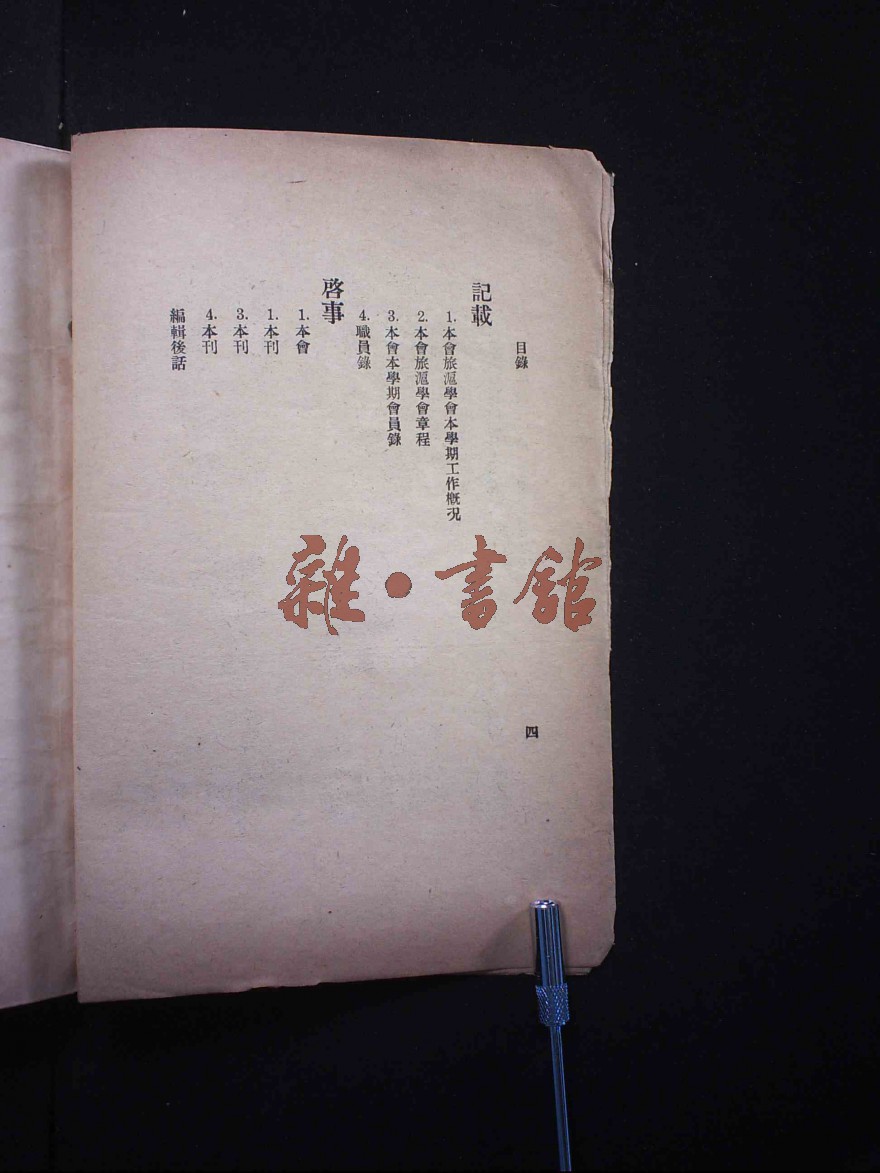 目錄
四
記載
1.本會旅滬學會本學期工作概況
2.本會旅滬學會章程
3.本會本學期會員錄
4.職員錄
啓事
1.本會
1.本刊
3.本刊
4.本刊
編輯後話
雜·書館